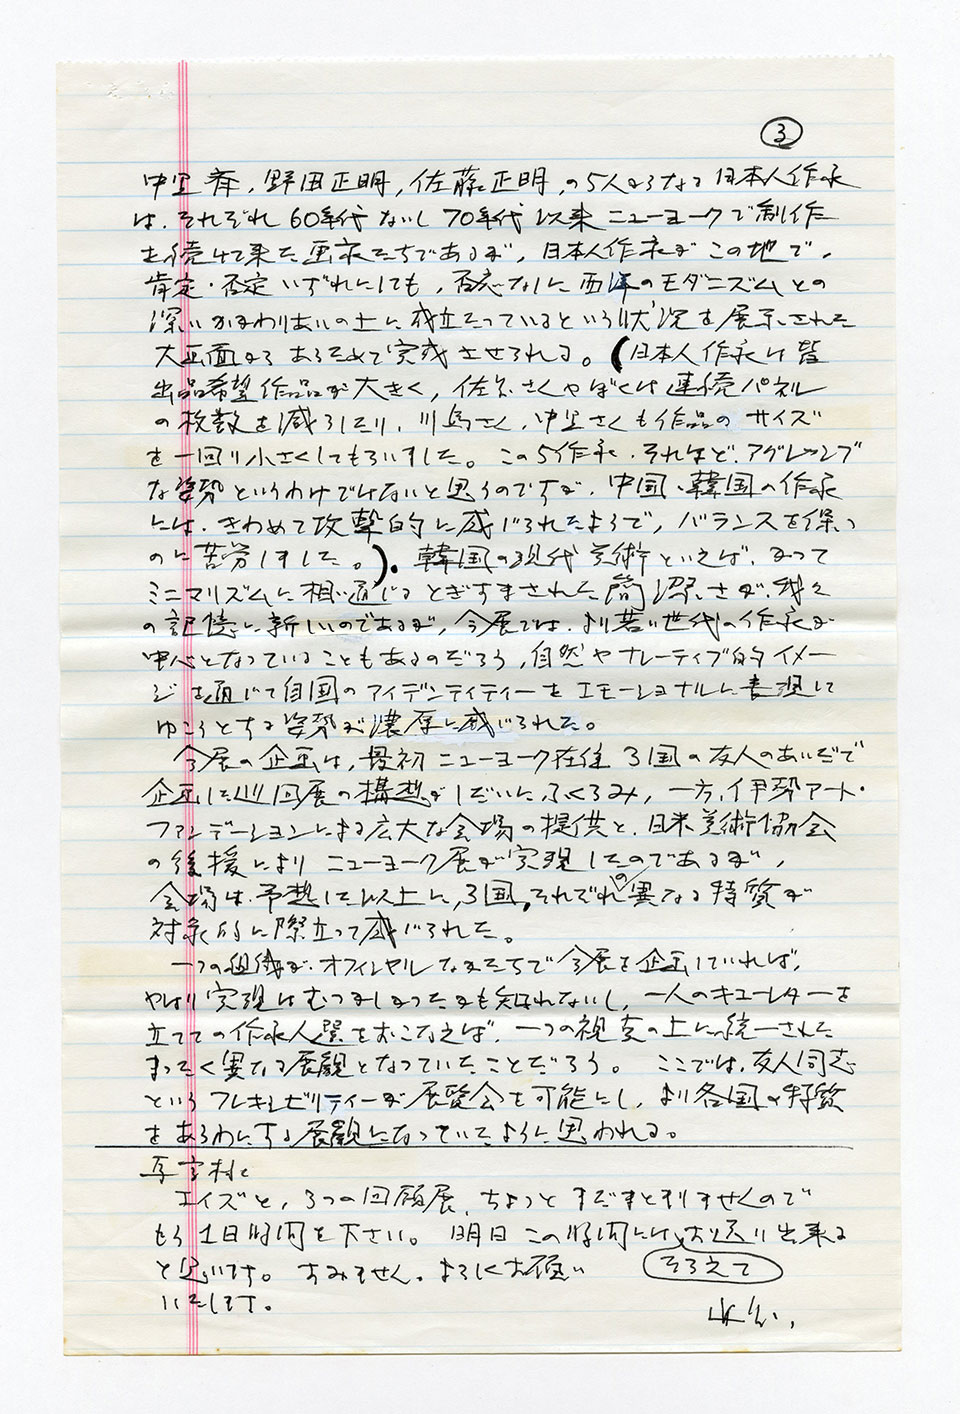 ③
中里斉,野田正明,佐藤正明,の5人からなる日本人作家
は、それぞれ60年代ないし70年代以来ニューヨークで制作
を続けて来た画家たちであるが,日本人作家がこの地で,
肯定・否定いずれにしても,否応なしに西洋のモダニズムとの
深いかかわりあいの上に成立っているという状況を展示された
大画面から あらためて完成させられる。(日本人作家は皆
出品希望作品が大きく,佐々さんやぼくは連続パネル
の枚数を減らしたり,川島さん,中里さんも作品のサイズ
を一回り小さくしてもらいました。この5作家、それほど、アグレッシブ
な姿勢というわけではないと思うのですが、中国、韓国の作家
には、きわめて攻撃的に感じられたようで,バランスを保つ
のに苦労しました。). 韓国の現代美術といえば、かつて
ミニマリズムに相い通じるとぎすまされた簡潔さが、我々
の記憶に新しいのであるが,今展では、より若い世代の作家が
中心となっていることもあるのだろう,自然やナレーティブ的イメー
ジを通じて自国のアイデンティティーをエモーショナルに表現して
ゆこうとする姿勢が濃厚に感じられた。
今展の企画は,最初ニューヨーク在住3国の友人のあいだで
企画した巡回展の構想がしだいにふくらみ,一方,伊勢アート・
ファンデーションによる広大な会場の提供と、日米美術協会
の後援によりニューヨーク展が実現したのであるが,
会場は、予想した以上に,3国,それぞれの異なる特質が
対象的に際立って感じられた。
一つの組織が、オフィシャルなかたちで今展を企画していれば,
やはり実現はむつかしかったかも知れないし,一人のキューレターを
立てての作家人選をおこなえば,一つの視点の上に統一された
まったく異なる展観となっていたことだろう。ここでは、友人同志
というフレキシビリティーが展覧会を可能にし,より各国の特質
をあらわにする展観になっていたように思われる。
エイズと,3つの回顧展、ちょっとまだまとまりませんので
もう1日時間を下さい。明日この時間にはそろえてお送り出来る
と思います。すみません。よろしくお願い
いたします。